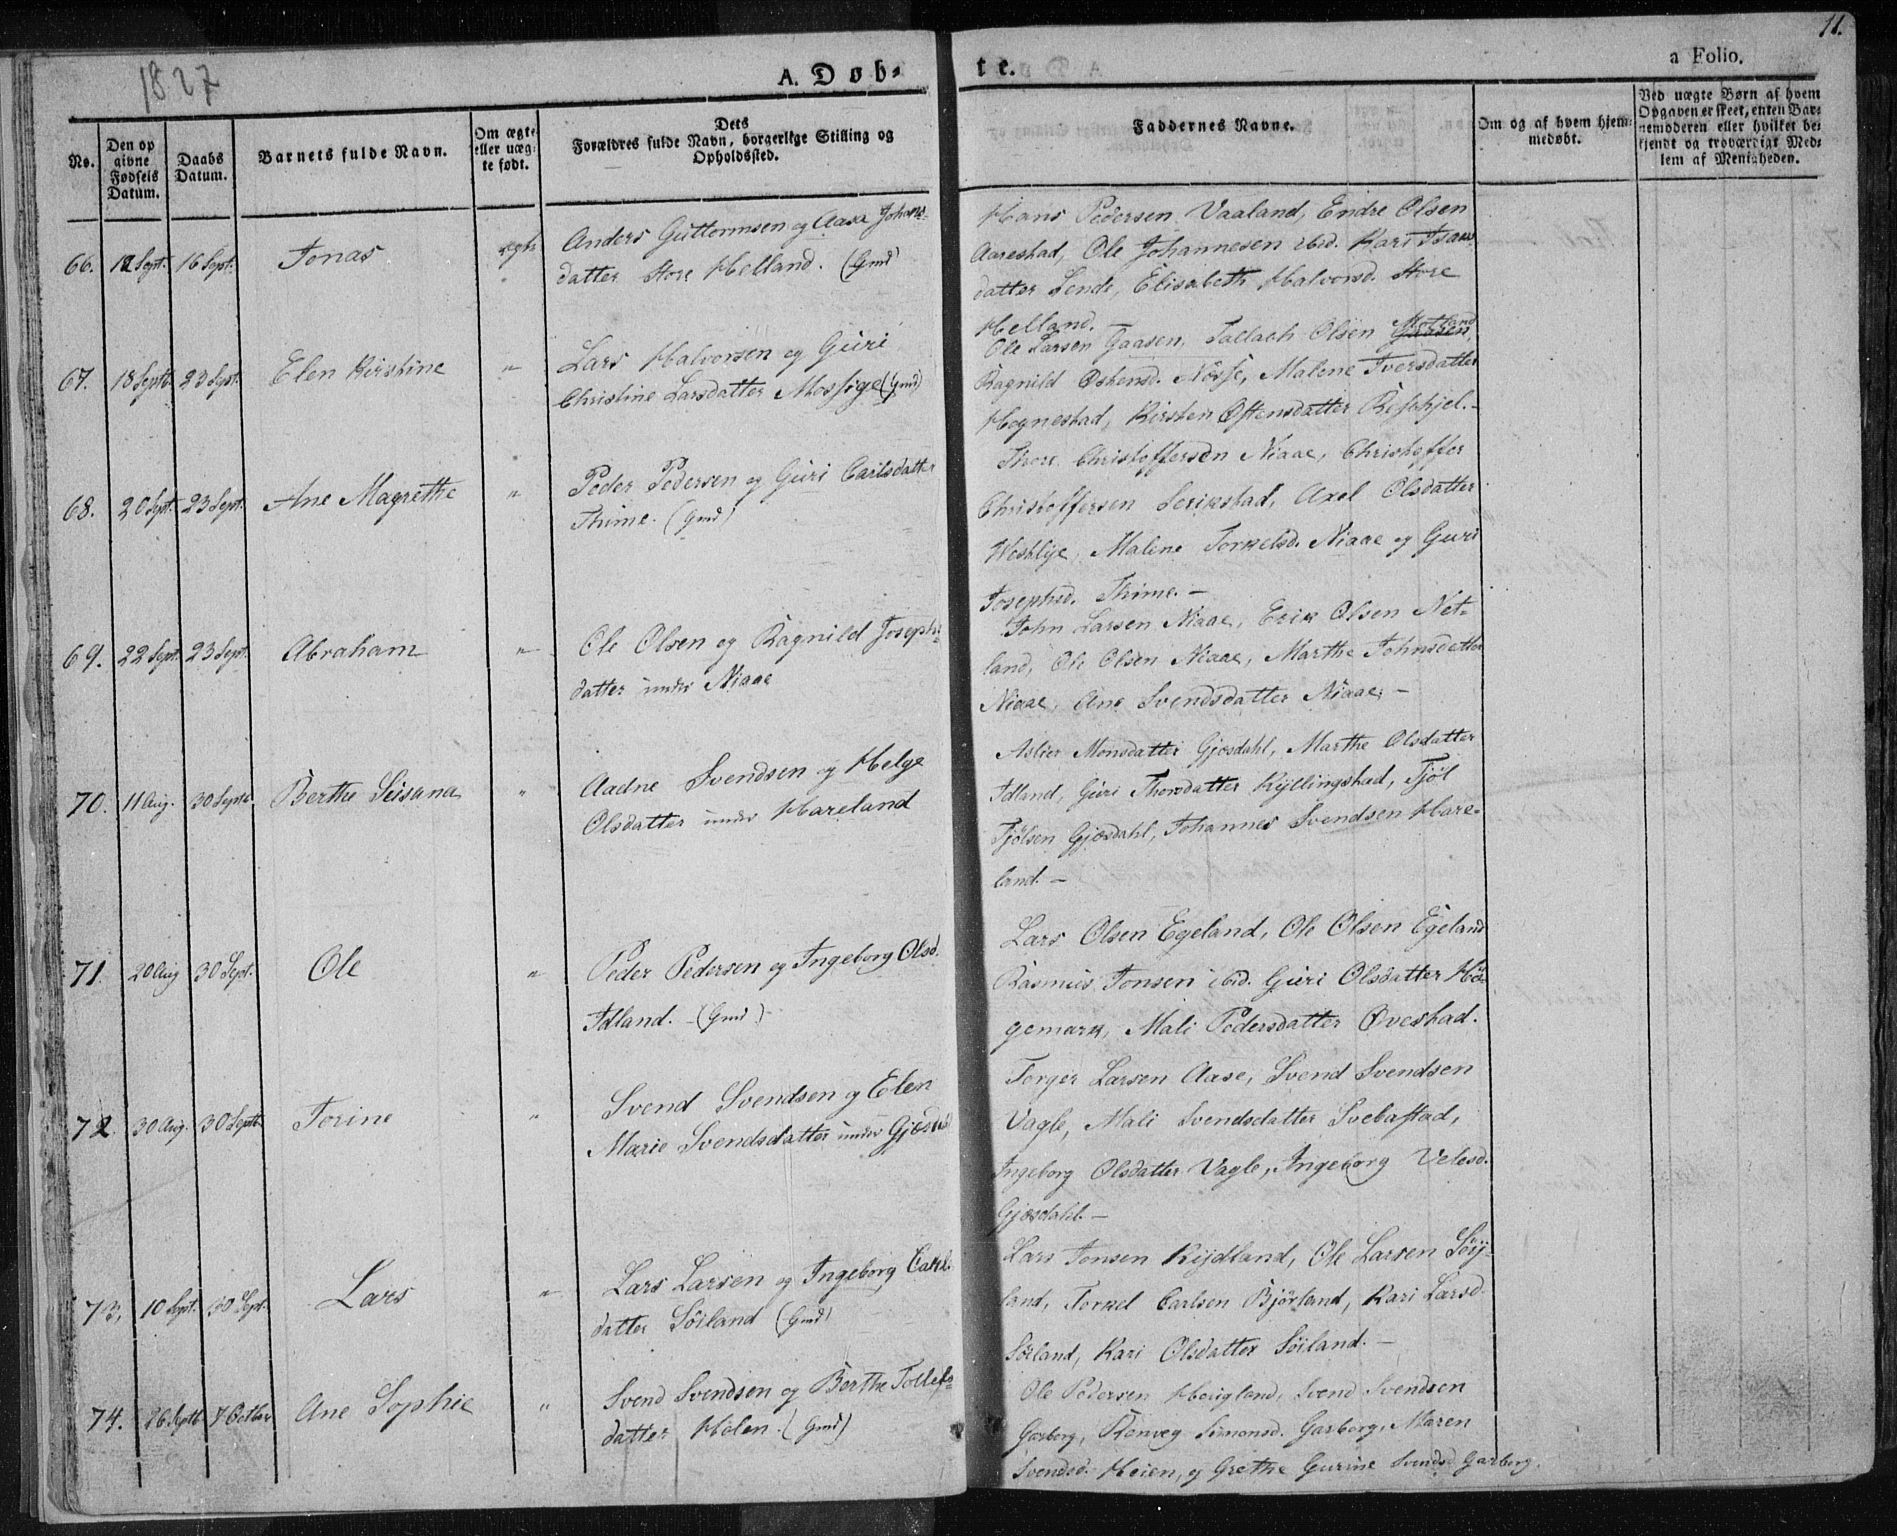 11.
1827
A. Døb-
te.
a Folio.
No.
Den op
givne
Fødsels
Datum.
Daabs
Datum.
Barnets fulde Navn.
Om ægte
eller uæg-
te født.
Dets
Forældres fulde Navn, borgerlige Stilling og
Opholdssted.
Faddernes Navne.
Om og af hvem hjem-
medøbt.
Ved uægte Børn af hvem
Opgaven er skeet, enten Bar-
nemoderen eller hvilket be-
kjendt og troværdigt Med-
lem af Menigheden.
66. 12 Sept. 16 Sept. Jonas ægte
Anders Guttormsen og Aasa Johans-
datter Store Helland. (Gmd)
Hans Pedersen Vaaland, Endre Olsen
Aarestad, Ole Johannesen ibid. Kari Isaks
datter Lende, Elisabeth Halvorsd. Store
Helland.
67. 18 Septb. 23 Sept. Elen Kirstine "
Lars Halvorsen og Guri
Christine Larsdatter Mossige (Gmd)
Ole Larsen Gaasen, Tallach Olsen Motland,
Ragnild Ostensd. Nosse, Malene Iversdatter
Hognestad, Kirsten Ostensdatter Refskjel.-
68. 20 Sept. 23 Sept. Ane Magrethe "
Peder Pedersen og Guri Carlsdatter
Thime. (Gmd)
Thore Christoffersen Niaae, Christoffer
Christoffersen Serikstad, Axel Olsdatter
Westlye, Malene Torkelsd. Niaae og Guri
Josephsd. Thime.-
69. 22 Sept. 23 Sept. Abraham "
Ole Olsen og Ragnild Josephs-
datter under Niaae
John Larsen Niaae, Erik Olsen Net-
land, Ole Olsen Niaae, Marthe Johnsdatter
Niaae, Ane Svendsdatter Niaae.-
70. 11 Aug. 30 Septb. Berthe Seisana "
Aadne Svendsen og Helge
Olsdatter under Hareland
Aslier Monsdatter Gjesdahl, Marthe Olsdatter
Idland, Guri Thorsdatter Kyllingstad, Tjøl
Tjølsen Gjesdahl, Johannes Svendsen Hare-
land.-
71. 20 Aug 30 Sept. Ole "
Peder Pedersen og Ingeborg Olsd.
Idland.-(Gmd)
Lars Olsen Egeland, Ole Olsen Egeland
Rasmus Jonsen ibid. Guri Olsdatter Hø-
gemark, Mali Pedersdatter Ovestad.
72. 30 Aug. 30 Septb. Torine "
Svend Svendsen og Elen
Marie Svendsdatter under Gjesdahl
Torger Larsen Aase, Svend Svendsen
Vagle, Mali Svendsdatter Svebastad,
Ingeborg Olsdatter Vagle, Ingeborg Velesd.
Gjesdahl.-
73, 10 Sept. 30 Sept. Lars "
Lars Larsen og Ingeborg Carls-
datter Söiland (Gmd)
Lars Jonsen Kydland, Ole Larsen Söy-
land, Torkel Carlsen Bjórland, Kari Larsd.
Söiland, Kari Olsdatter Söiland.-
74. 26 Septb. 7 Octbr Ane Sophie "
Svend Svendsen og Berthe Tollefs-
datter Hølen. (Gmd)
Ole Pedersen Høigland, Svend Svendsen
Garberg, Renveg Simonsd. Garborg, Maren
Svendsd. Høien, og Grethe Gurine Svendsd. Garborg.